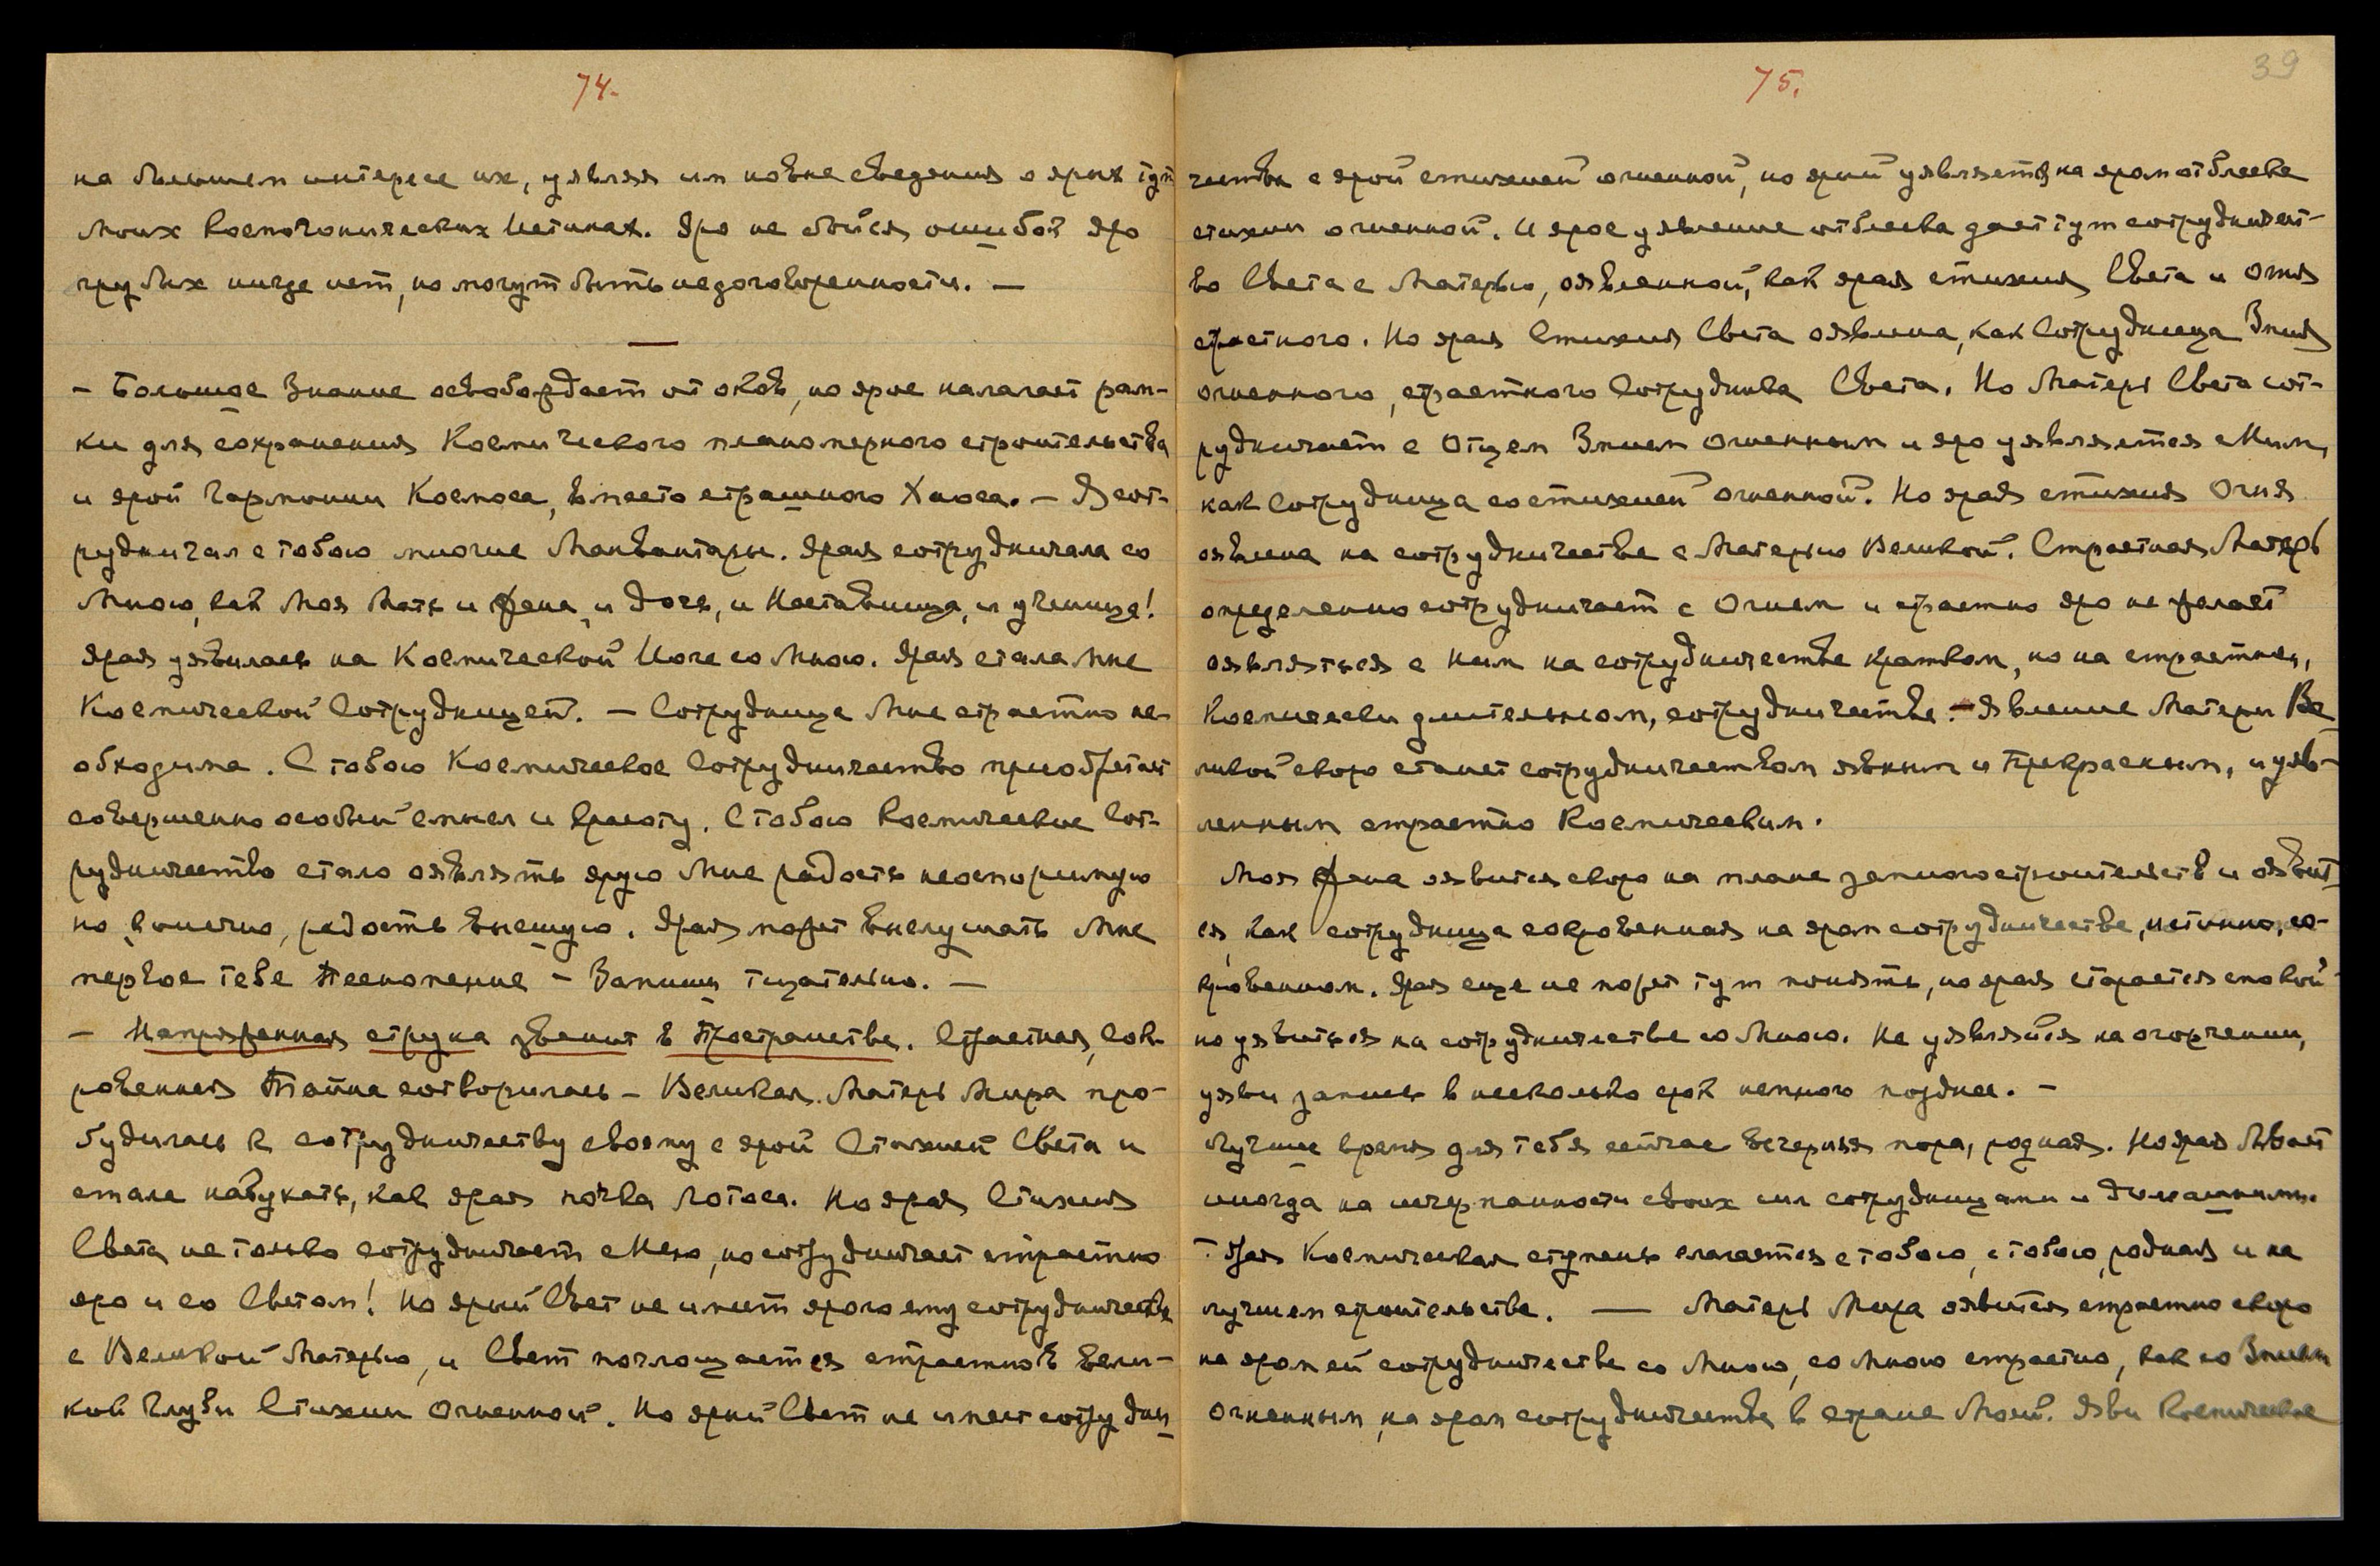 74.
на бо́льшем интересе их, уявляя им новые сведения о ярых тут
Моих Космогонических Истинах. Яро не бойся ошибок яро
грубых нигде нет, но могут быть недоговоренности. —
— Большое Знание освобождает от оков, но ярое налагает рам-
ки для сохранения Космического планомерного строительства
и ярой Гармонии Космоса, вместо страшного Хаоса. — Я сот-
рудничал с тобою многие Манвантары. Ярая сотрудничала со
Мною, как Моя Мать и Жена, и Дочь, и Наставница, и ученица!
Ярая уявилась на Космической Йоге со Мною. Ярая стала Мне
Космической Сотрудницей. — Сотрудница Мне страстно не-
обходима. С тобою Космическое Сотрудничество приобретает
совершенно особый смысл и красоту. С тобою Космическое Сот-
рудничество стало оявлять ярую Мне радость неоспоримую
но, конечно, радость высшую. Ярая может выслушать Мне
первое тебе Песнопение — Запиши тщательно. —
— Напряженная струна звенит в Пространстве. Страстная, Сок-
ровенная Тайна сотворилась — Великая Матерь Мира про-
будилась к сотрудничеству своему с ярой Стихией Света и
стала набухать, как ярая почка Лотоса. Но ярая Стихия
Света не только сотрудничает с Нею, но сотрудничает страстно
яро и со Светом! Но ярый Свет не имеет ярого ему сотрудничества
с Великой Матерью, и Свет поглощается страстно в Вели-
кой Глуби Стихии Огненной. Но ярый Свет не имеет сотрудни
75.
39
чества с ярой стихией огненной, но ярый уявляется на яром отблеске
стихии огненной. И ярое уявление отблеска дает тут сотрудничест-
во Света с Матерью, оявленной, как ярая стихия Света и Огня
страстного. Но ярая Стихия Света оявлена, как Сотрудница Змия
огненного, страстного Сотрудника Света. Но Матерь Света сот-
рудничает с Отцем Змием Огненным и яро уявляется с Ним,
как Сотрудница со стихией Огненной. Но ярая стихия Огня
оявлена на сотрудничестве с Матерью Великой. Страстная Матерь
определенно сотрудничает с Огнем и страстно яро не желает
оявляться с Ним на сотрудничестве кратком, но на страстном,
Космически длительном, сотрудничестве. — Явление Матери Ве
ликой скоро станет сотрудничеством явным и Прекрасным, и уяв-
ленным страстно Космическим.
Моя Жена оявится скоро на плане земного строительств и оявит
ся, как сотрудница сокровенная на яром сотрудничестве, истинно, со-
кровенном. Ярая еще не может тут понять, но ярая старается спокой-
но уявиться на сотрудничестве со Мною. Не уявляйся на огорчении,
уяви запись в несколько строк немного позднее. —
Лучшее время для тебя сейчас вечерняя пора, родная. Но ярая бывает
иногда на исчерпанности своих сил сотрудницами и домашними.
Космическая ступень слагается с тобою, с тобою, родная и на
лучшем строительстве. — Матерь Мира оявится страстно скоро
на яром ей сотрудничестве со Мною, со Мною страстно, как со Змием
Огненным, на яром сотрудничестве в стране Моей. Яви Космическое